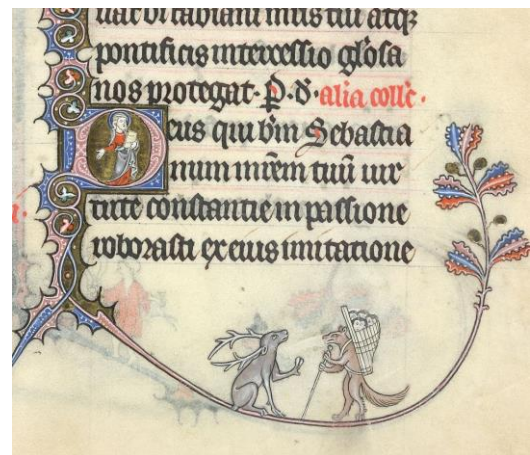 uat bi fabiani mris tui atqȝ
pontificis intercessio gl'osa
nos protegat. P. d. alia coll'c.
Deus qui bm̄ Sebastia
num mr̄em tuū uir
tute constantie in passione
roborasti ex eius imitatione